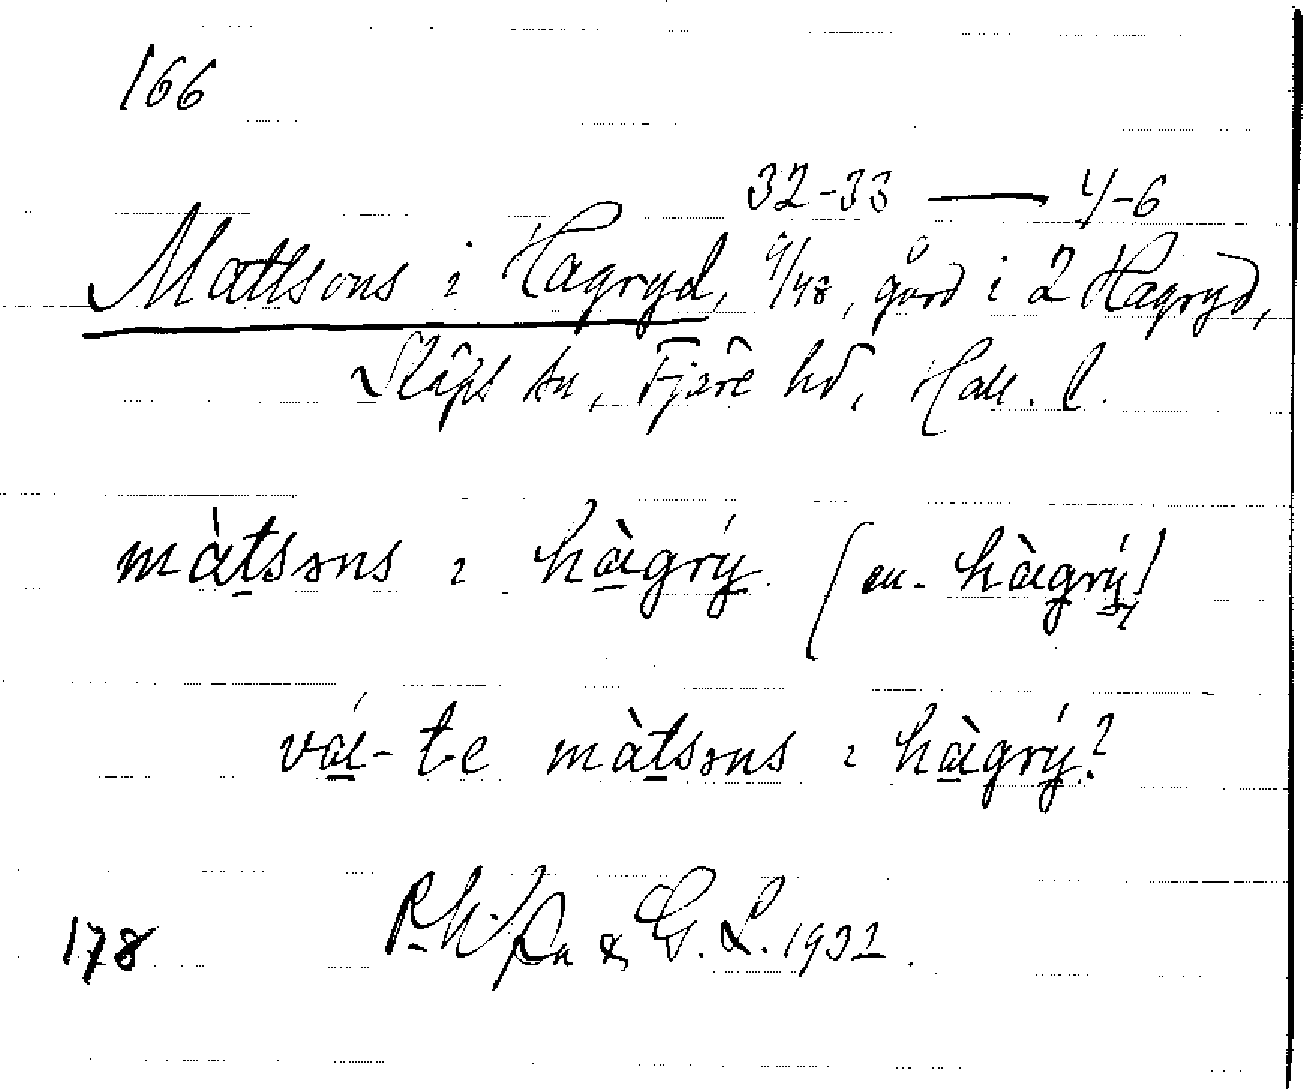 166
32-33 — 4-6
Mattsons i Hagryd, 9/48, gård i 2 Hagryd,
Släps sn, Fjäre hd, Hall. l.
màtsɘns ɩ hàgrý. (en- hàgrý)
vá-te màtsɘns ɩ hàgrý?
178 & G. L. 1932.